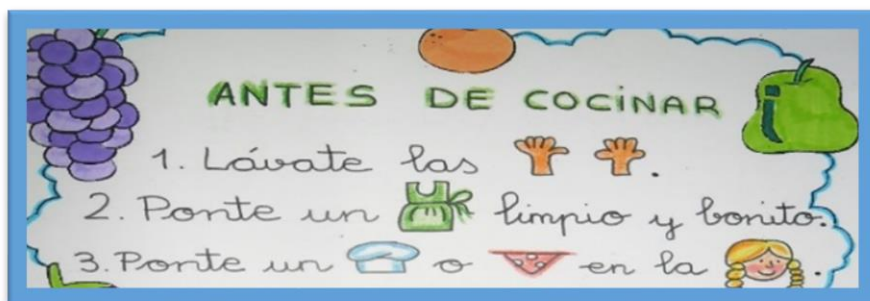 ANTES DE COCINAR
1. Lávate las .
2. Ponte un limpio y bonito.
3. Ponte un o en la .